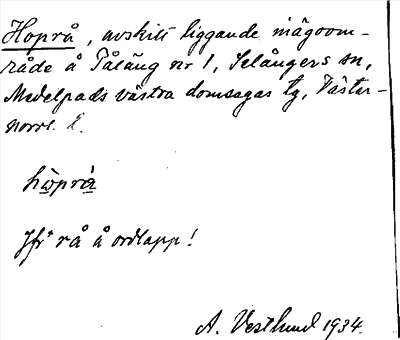 Hoprå, avskilt liggande inägoom-
råde å Tåläng nr 1, Selångers sn,
Medelpads västra domsagas tg, Väster-
norrl. l.
hòprå̀
Jfr rå å ordlapp!
A. Vestlund 1934.